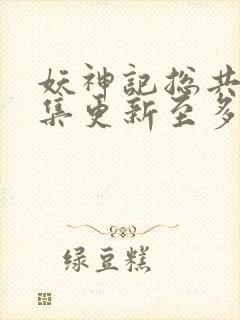 妖神记总共
集更新至多
绿豆糕